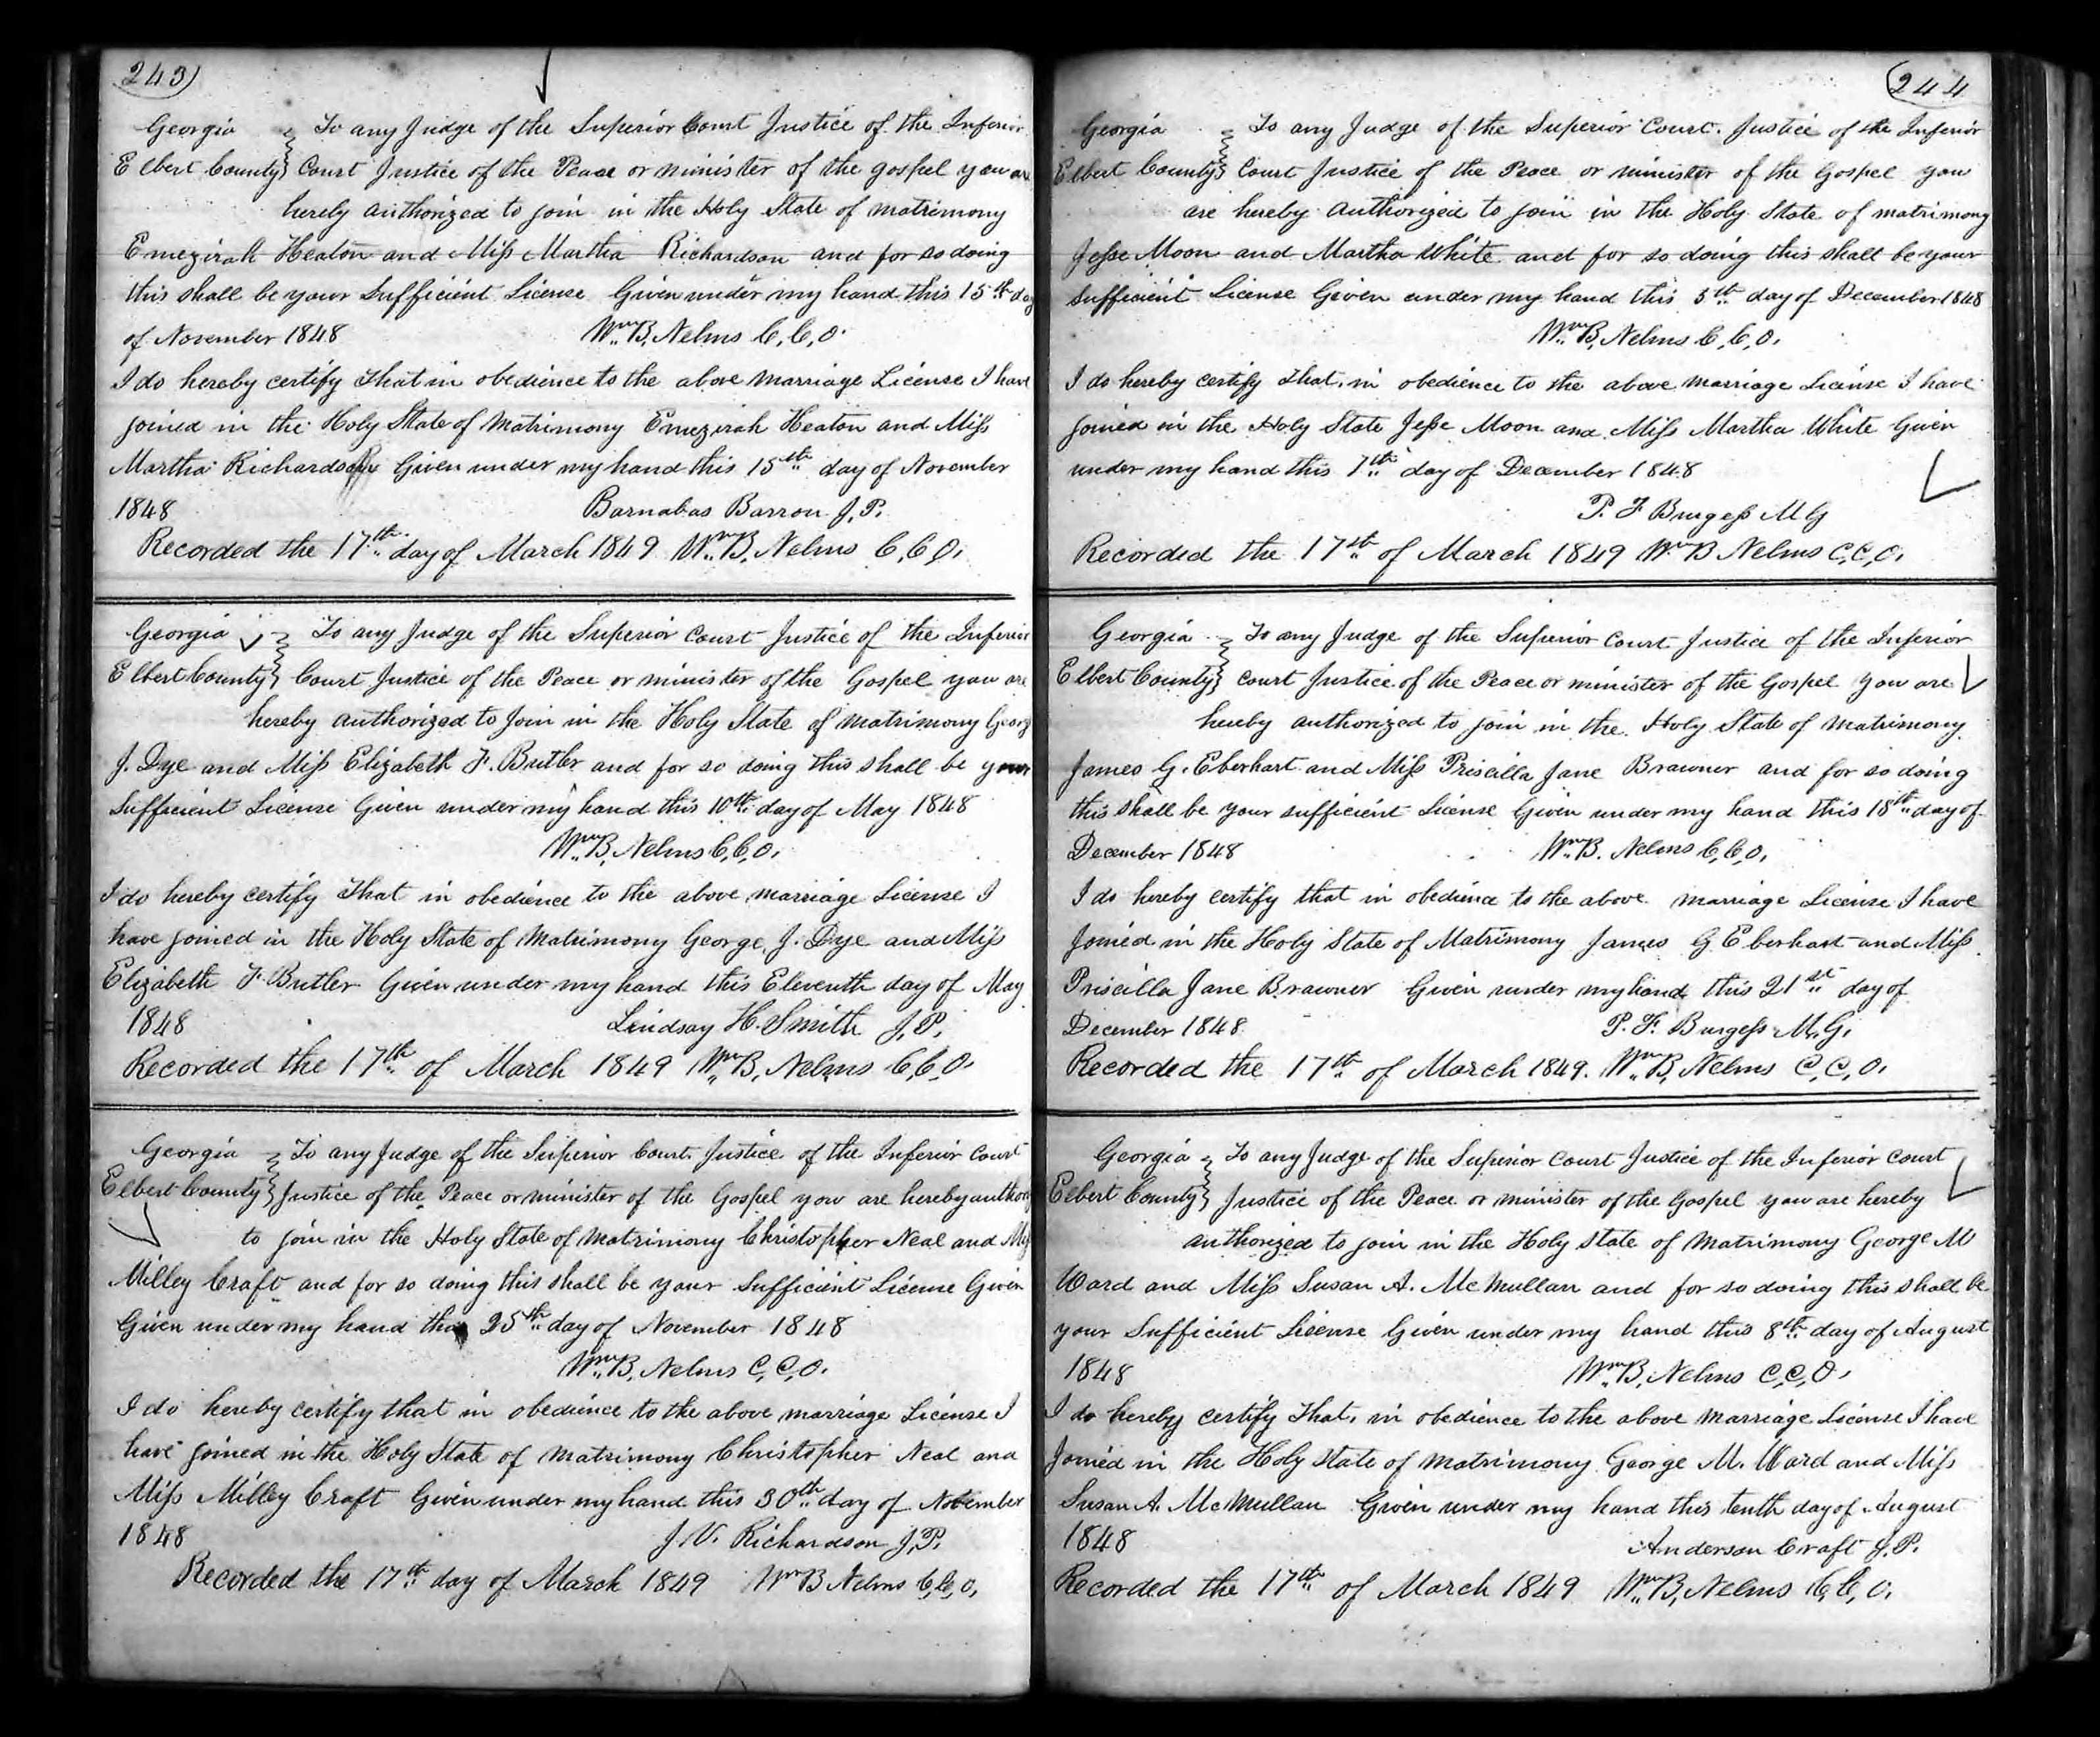 243
Georgia To any Judge of the Superior Court Justice of the Inferior
Elbert County Court Justice of the Peace or minister of the gospel you are
hereby authorized to join in the Holy State of matrimony
Emezirah Heaton and Miss Martha Richardson and for so doing
this shall be your Sufficient License Given under my hand this 15th day
of November 1848 Wm. B. Nelms C.C.O.
I do hereby certify that in obedience to the above marriage License I have
joined in the Holy State of Matrimony Emezirah Heaton and Miss
Martha Richardson Given under my hand this 15th day of November
1848 Barnabas Barron J.P.
Recorded the 17th day of March 1849 Wm. B. Nelms C.C.O.
Georgia To any Judge of the Superior Court Justice of the Inferior
Elbert County Court Justice of the Peace or minister of the Gospel you are
hereby authorized to Join in the Holy State of matrimony Georg
J. Dye and Miss Elizabeth F. Butler and for so doing this shall be your
Sufficient License Given under my hand this 10th day of May 1848
Wm. B. Nelms C.C.O.
I do hereby certify that in obedience to the above marriage License I
have joined in the Holy State of Matrimony George J. Dye and Miss
Elizabeth F. Butler Given under my hand this Eleventh day of May
1848 Lindsay H. Smith J.P.
Recorded the 17th of March 1849 Wm. B. Nelms C.C.O.
Georgia To any Judge of the Superior Court Justice of the Inferior Court
Elbert County Justice of the Peace or minister of the Gospel you are hereby
to join in the Holy State of matrimony Christopher Neal and
Milley Craft and for so doing this shall be your Sufficient License Given
Given under my hand this 25th day of November 1848
Wm. B. Nelms C.C.O.
I do hereby certify that in obedience to the above marriage License I
have joined in the Holy State of matrimony Christopher Neal and
Miss Milley Craft Given under my hand this 30th day of November
1848 J.V. Richardson J.P.
Recorded the 17th day of March 1849 Wm B Nelms C.C.O.
244
Georgia To any Judge of the Superior Court. Justice of the Inferior
Elbert County Court Justice of the Peace or minister of the Gospel you
are hereby authorized to join in the Holy State of matrimony
Jesse Moon and Martha White and for so doing this shall be your
Sufficient License Given under my hand this 5th day of December 1848
Wm. B. Nelms C.C.O.
I do hereby certify that in obedience to the above marriage License I have
joined in the Holy State Jesse Moon and Miss Martha White Given
under my hand this 7th day of December 1848
P. F Burgess M G
Recorded the 17th of March 1849 Wm B Nelms C.C.O.
Georgia To any Judge of the Superior Court Justice of the Inferior
Elbert County Court Justice of the Peace or minister of the Gospel you are
hereby authorized to join in the Holy State of Matrimony
James G. Eberhart and Miss Priscilla Jane Brawner and for so doing
this shall be your sufficient License Given under my hand this 18th day of
December 1848 Wm. B. Nelms C.C.O.
I do hereby certify that in obedience to the above marriage License I have
Joined in the Holy State of Matrimony James G Eberhart and Miss
Priscilla Jane Brawner Given under my hand this 21st day of
December 1848 P. F. Burgess M.G.
Recorded the 17th of March 1849. Wm. B. Nelms C.C.O.
Georgia To any Judge of the Superior Court Justice of the Inferior Court
Elbert County Justice of the Peace or minister of the Gospel you are hereby
authorized to join in the Holy State of Matrimony George M
Ward and Miss Susan A. McMullan and for so doing this shall be
your Sufficient License Given under my hand this 8th day of August
1848 Wm. B. Nelms C.C.O.
I do hereby certify that in obedience to the above Marriage License I have
Joined in the Holy State of matrimony George M. Ward and Miss
Susan A. McMullan Given under my hand this tenth day of August
1848 Anderson Craft J.P.
Recorded the 17th of March 1849 Wm. B. Nelms C.C.O.